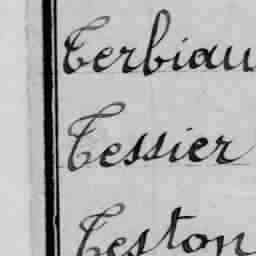 Terbiau
Tessier
Teston